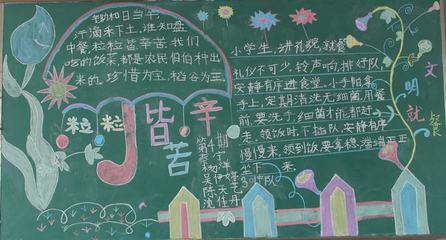 锄禾日当午
汗滴禾下土,谁知盘
中餐粒粒皆辛苦,我们
吃的饭菜都是农民伯伯种出
来的,珍惜为宝,稻谷为王。
粒粒皆辛苦
小学生,讲礼貌,就餐
礼仪不可少,铃声响,排好队
安静有序进食堂,小手陪拿
手上,定期清洗无细菌,用餐
前,要洗手,细菌才能都赶
走,领饭时,不插队,安静有序
慢慢来,领到饭,要拿稳,端端正正
坐下来
文明就餐
第4期
3中队